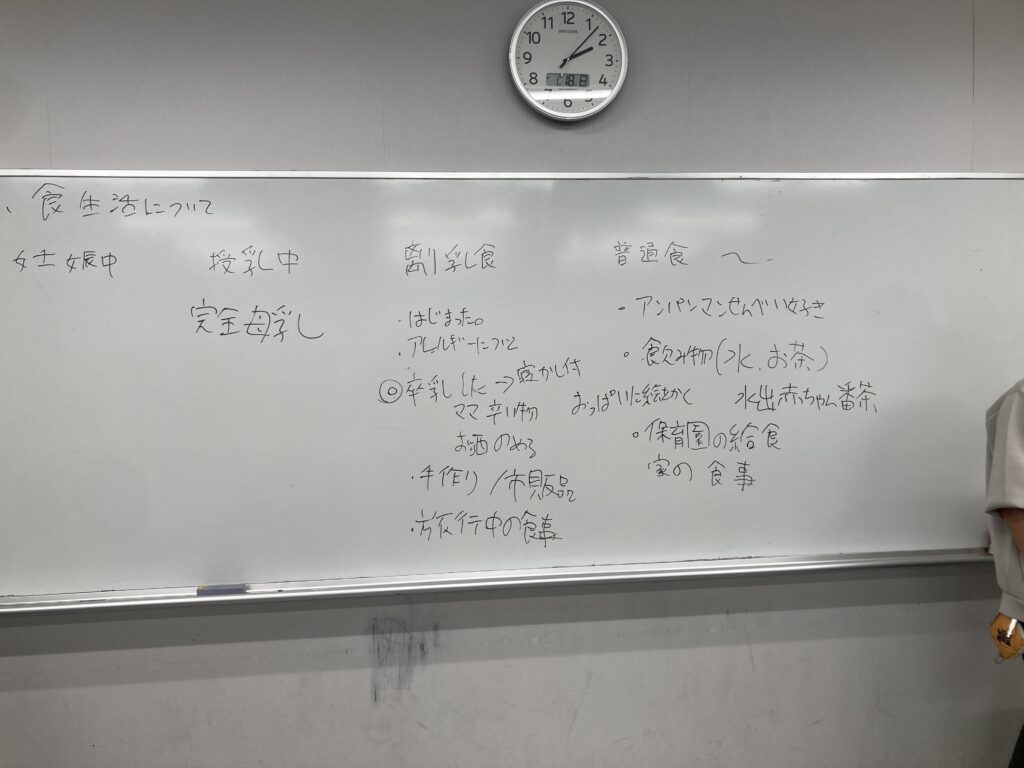 12
1
2
3
4
6
8
9
10
11
RHYTHM
、食生活について
妊娠中
授乳中
離乳食
普通食 〜
完全母乳
・はじまった。
・アレルギーについて
・
◎卒乳した→寝かし付
ママ辛い物
お酒のめる
おっぱいに絵をかく
・手作り/市販品
・旅行中の食事
・アンパンマンせんべい好き
・飲み物(水、お茶)
水出赤ちゃん番茶
・保育園の給食
家の食事